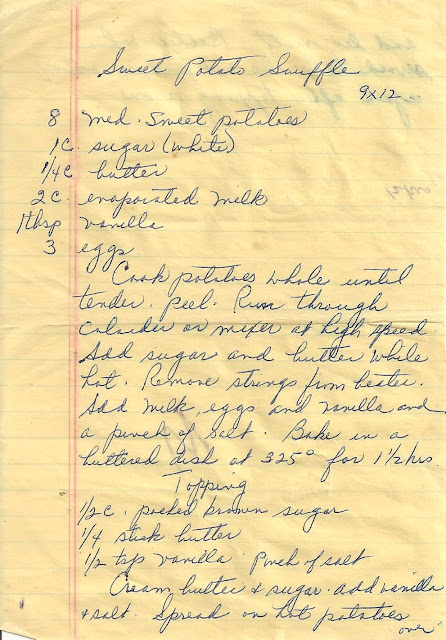 Sweet Potato Souffle
9x12
8 med. sweet potatoes
1c. sugar (white)
1/4c butter
2c. evaporated milk
1tbsp vanilla
3 eggs
Cook potatoes whole until
tender. peel. Run through
colander or mixer at high speed
Add sugar and butter while
hot. Remove strings from beater.
Add milk, eggs and vanilla and
a pinch of salt. Bake in a
buttered dish at 325° for 1 1/2 hrs
Topping
1/2 c. packed brown sugar
1/4 stick butter
1/2 tsp vanilla Pinch of salt
Cream butter & sugar. add vanilla
& salt. Spread on hot potatoes
over